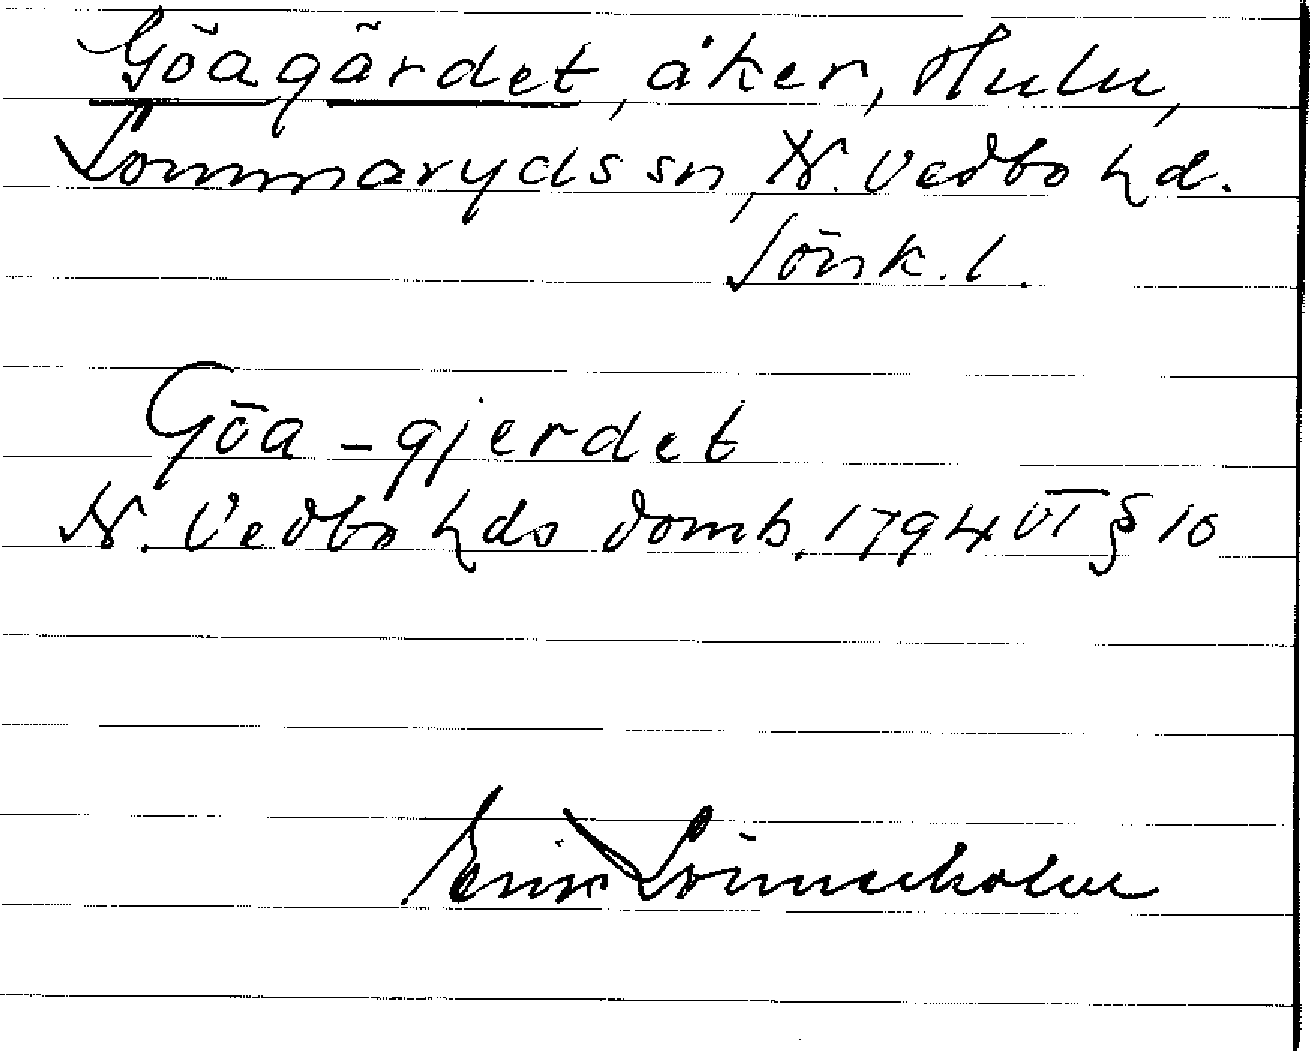 Göagärdet, åker, Hulu,
Lommaryds sn, N. Vedbo hd.
Jönk. l.
Göa-gjerdet
N. Vedbo hds domb. 1794 VI § 10
Erik Lönnerholm